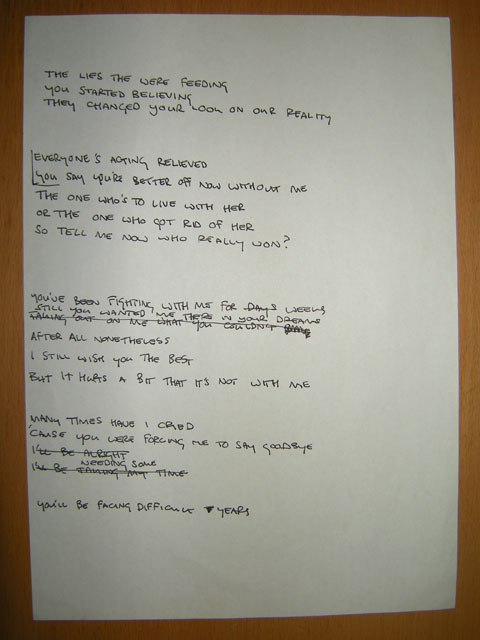 THE LIES THE WERE FEEDING
YOU STARTED BELIEVING
THEY CHANGED YOUR LOOK ON OUR REALITY
EVERYONE'S ACTING RELIEVED
YOU SAY YOU'RE BETTER OFF NOW WITHOUT ME
THE ONE WHO'S TO LIVE WITH HER
OR THE ONE WHO GOT RID OF HER
SO TELL ME NOW WHO REALLY WON?
YOU'VE BEEN FIGHTING WITH ME FOR DAYS WEEKS
STILL YOU WANTED ME THERE IN YOUR DREAMS
TAKING OUT ON ME WHAT YOU COULDN'T
AFTER ALL NONETHELESS
I STILL WISH YOU THE BEST
BUT IT HURTS A BIT THAT IT'S NOT WITH ME
MANY TIMES HAVE I CRIED
'CAUSE YOU WERE FORCING ME TO SAY GOODBYE
I'LL BE ALRIGHT
NEEDING SOME
I'LL BE TAKING MY TIME
YOU'LL BE FACING DIFFICULT YEARS